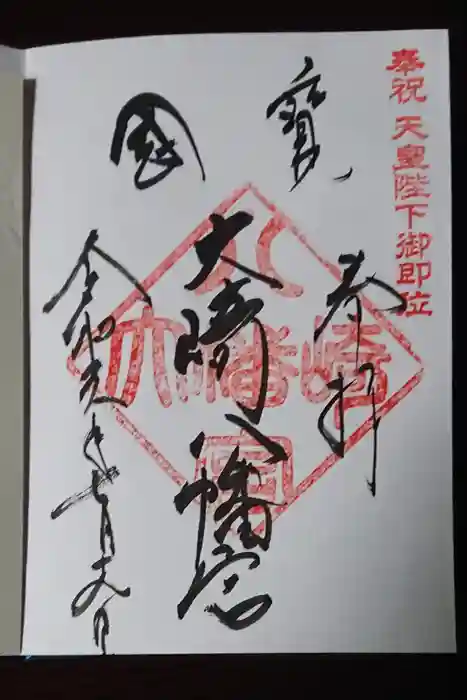 奉祝 天皇陛下御即位
國寳
奉拝
大崎八幡宮
令和元年七月十九日
大崎八幡宮